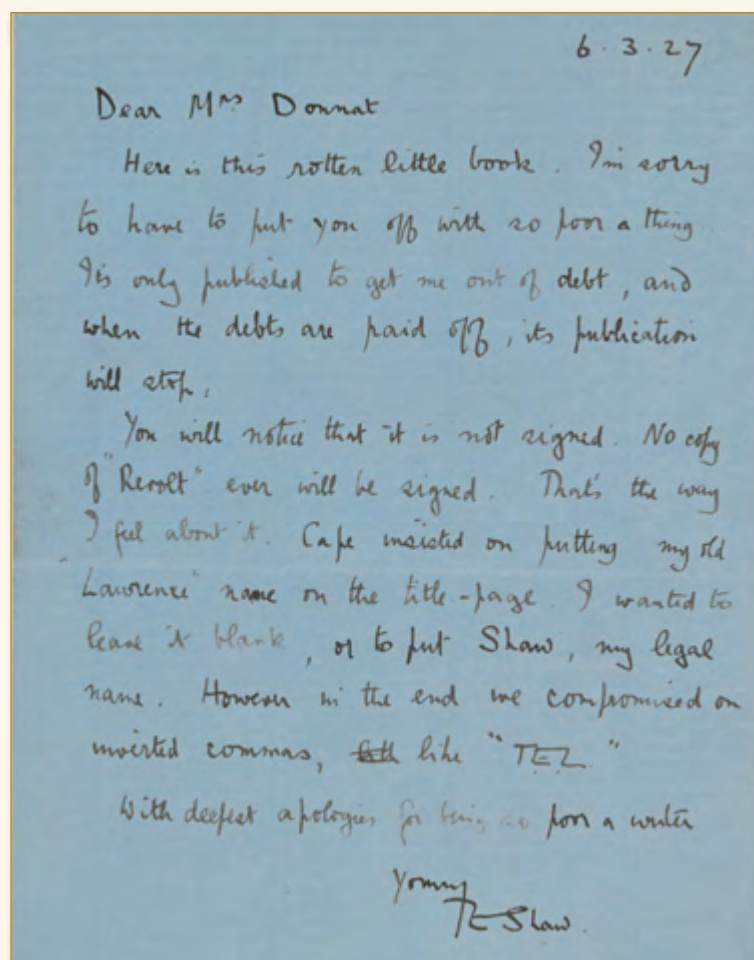 6.3.27
Dear Mrs Donnat
Here is this rotten little book. I'm sorry
to have to put you off with so poor a thing.
Its only published to get me out of debt, and
when the debts are paid off, its publication
will stop.
You will notice that it is not signed. No copy
of "Revolt" ever will be signed. That's the way
I feel about it. Cape insisted on putting my old
"Lawrence" name on the title-page. I wanted to
leave it blank, or to put Shaw, my legal
name. However in the end we compromised on
inverted commas, like "TEL."
With deepest apologies for being so poor a writer
Yours
TE Shaw.